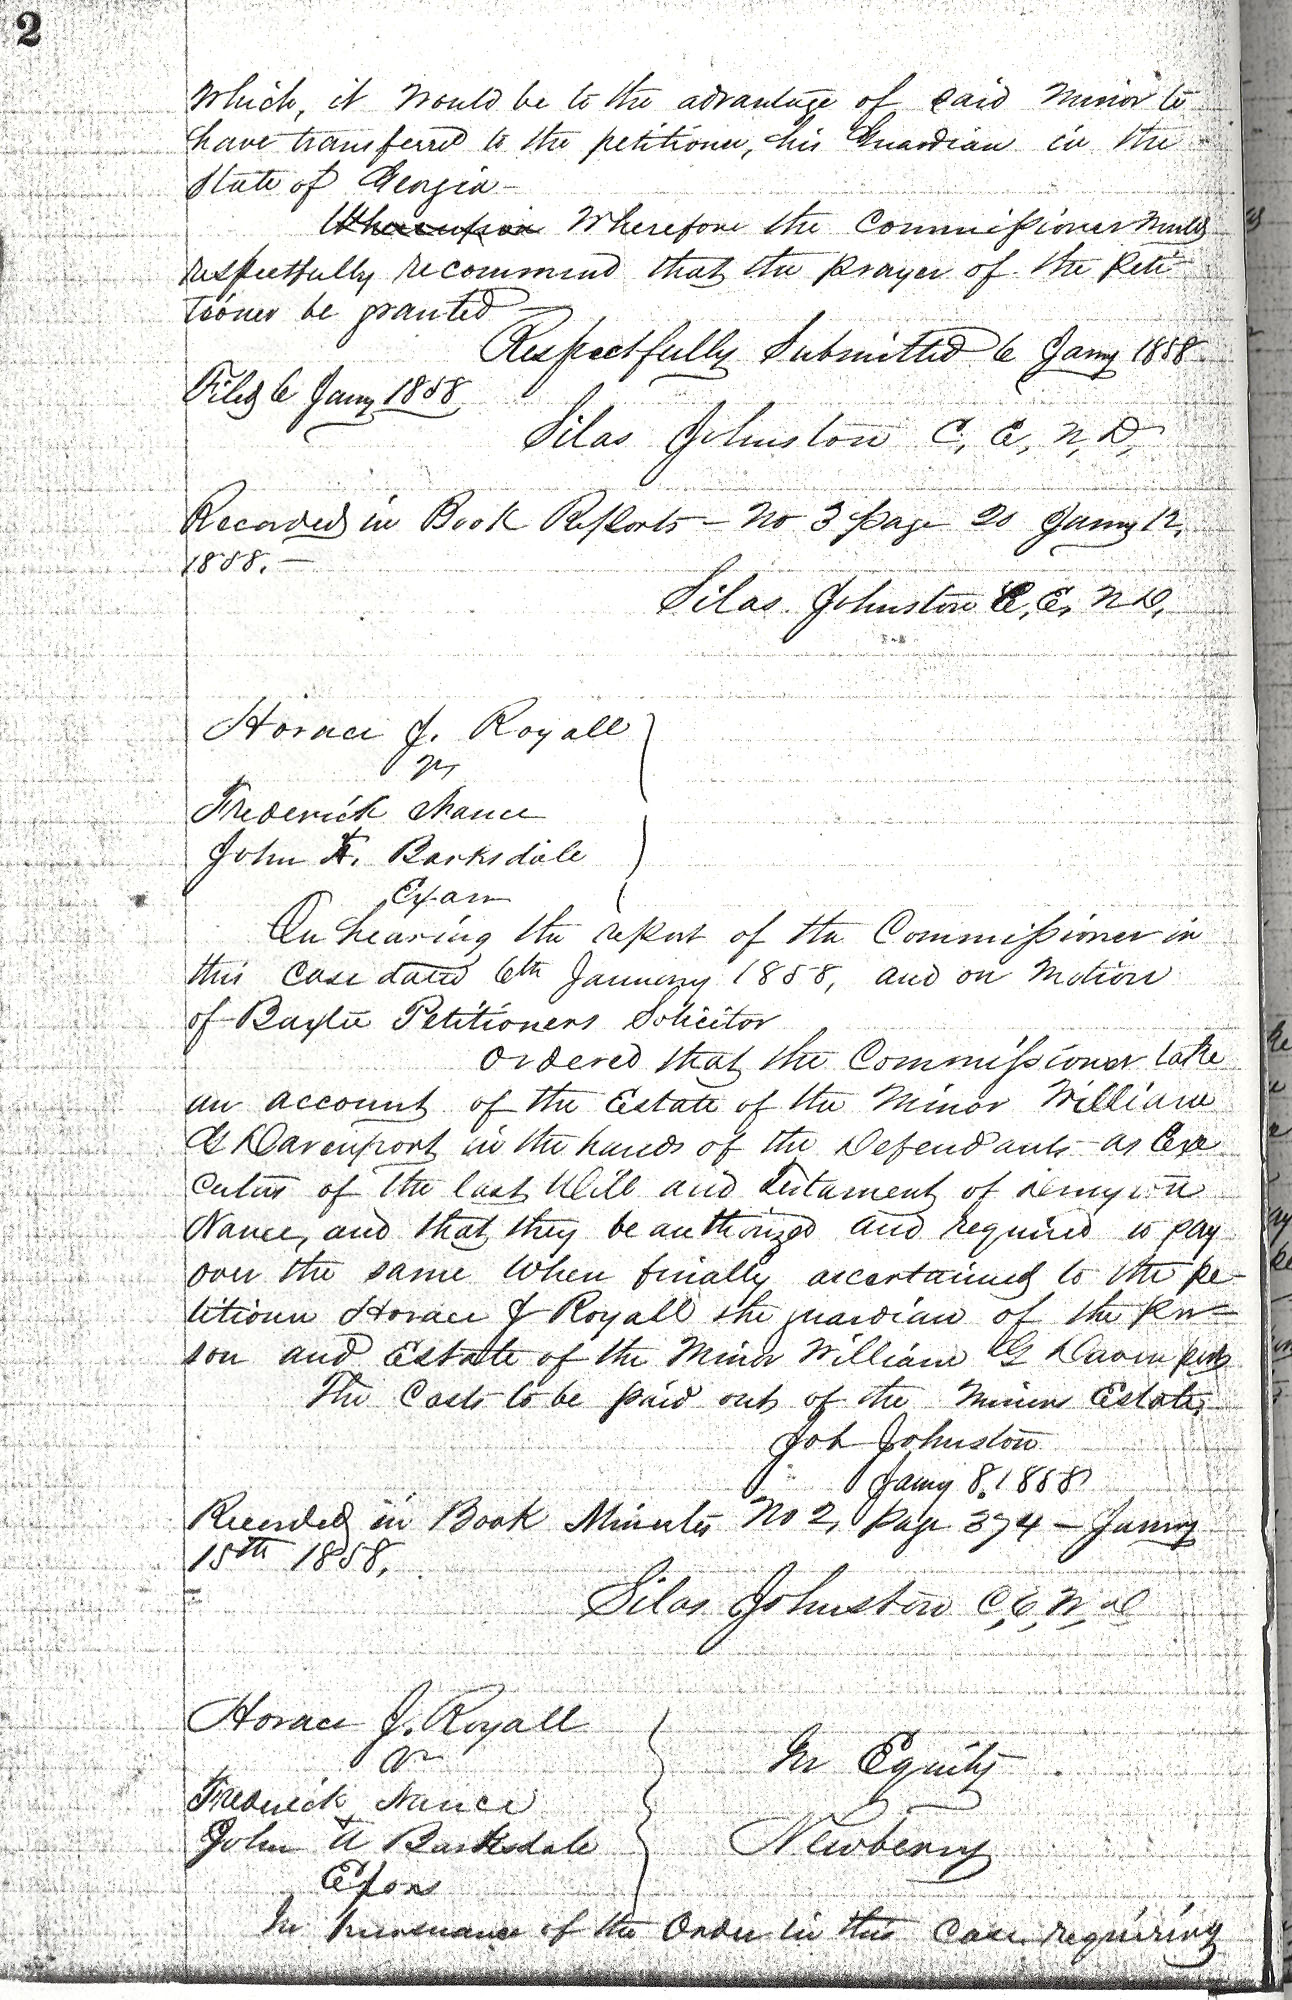 2
Which, it would be to the advantage of said minor to
have transferred to the petitioner, his Guardian in the
State of Georgia —
Whereupon Wherefore the Commissioner would
respectfully recommend that the prayer of the peti-
tioner be granted —
Respectfully Submitted 6 Jany 1858
Filed 6 Jany 1858
Silas Johnston C. E. N. D.
Recorded in Book Reports — No 3 page 20 Jany 12,
1858. —
Silas Johnston C. E. N D.
Horace J. Royall
vs
Frederick Nance
John A. Barksdale
Exors
On hearing the report of the Commissioner in
this case dated 6th January 1858, and on motion
of Baxter Petitioners Solicitor
Ordered that the Commissioner take
an account of the Estate of the Minor William
G Davenport in the hands of the Defendants as Exe
cutors of the last Will and Testament of
Nance, and that they be authorized and required to pay
over the same when finally ascertained to the pe-
titioner Horace J Royall the guardian of the per-
son and Estate of the Minor William G Davenport
The Costs to be paid out of the minors Estate.
Job Johnston
Jany 8. 1858
Recorded in Book Minutes No 2, Page 374 — Jany
15th 1858.
Silas Johnston C. E. N. D
Horace J. Royall
vs
In Equity
Frederick Nance
&
John A Barksdale
Newberry
Exors
In pursuance of the Order in this Case requiring